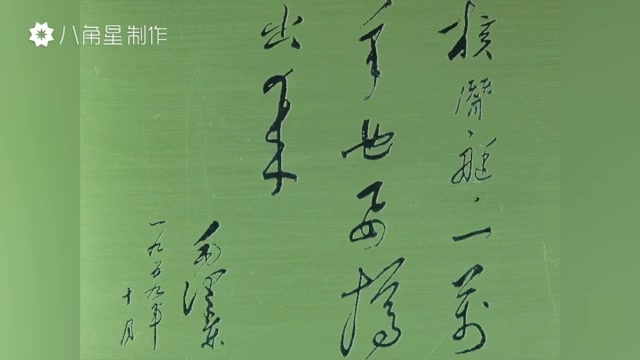 八角星制作
核潜艇、一萬
年也要搞
出来
毛泽东
一九五九年
十月